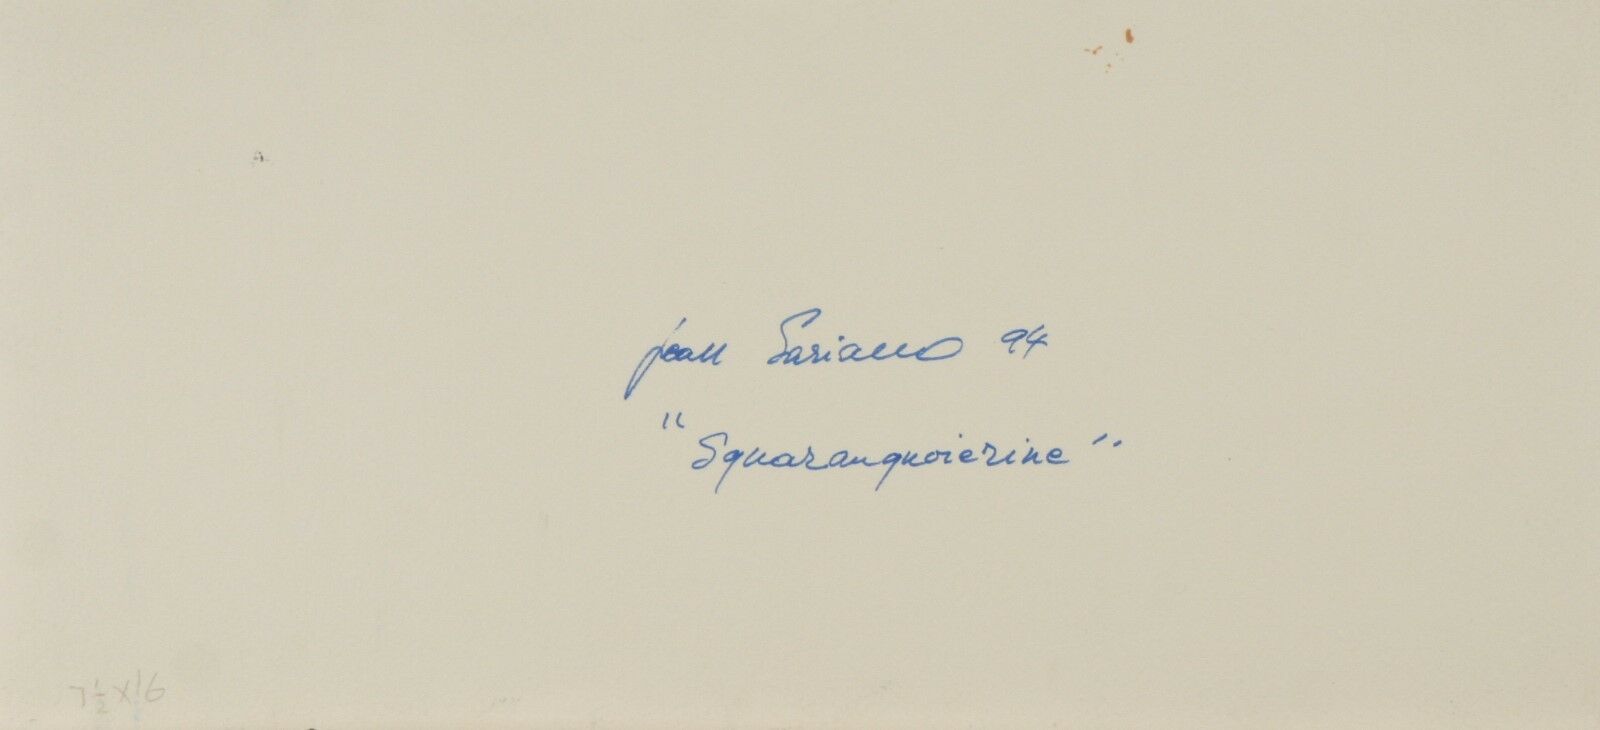 jean Soriano 94
"Squaranquoierine"
7½ X 16